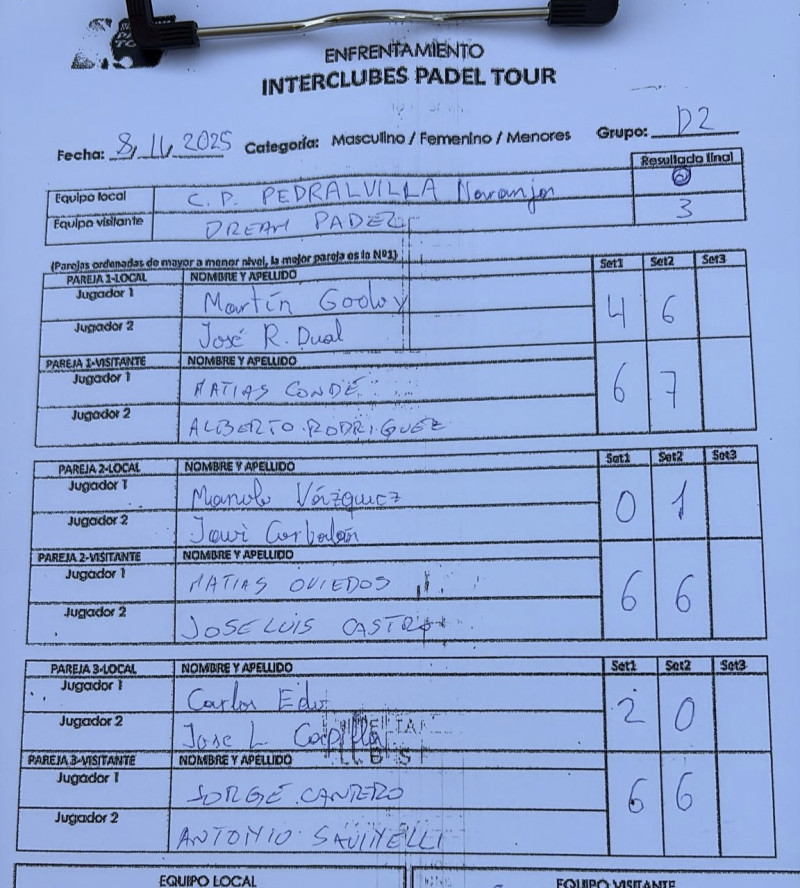 ENFRENTAMIENTO
INTERCLUBES PADEL TOUR
Fecha: 8, 11, 2025 Categoría: Masculino / Femenino / Menores Grupo: D2
Resultado final
Equipo local C. P. PEDRALVILLA Naranjon 0
Equipo visitante DREAM PADEL 3
(Parejas ordenadas de mayor a menor nivel, la mejor pareja es la Nº1)
PAREJA 1-LOCAL NOMBRE Y APELLIDO Set1 Set2 Set3
Jugador 1 Martín Godoy 4 6
Jugador 2 José R. Dual
PAREJA 1-VISITANTE NOMBRE Y APELLIDO
Jugador 1 MATIAS CONDE 6 7
Jugador 2 ALBERTO RODRIGUEZ
PAREJA 2-LOCAL NOMBRE Y APELLIDO Set1 Set2 Set3
Jugador 1 Manolo Vázquez 0 1
Jugador 2 Javi Corbalán
PAREJA 2-VISITANTE NOMBRE Y APELLIDO
Jugador 1 MATIAS OVIEDOS 6 6
Jugador 2 JOSE LUIS CASTRO
PAREJA 3-LOCAL NOMBRE Y APELLIDO Set1 Set2 Set3
Jugador 1 Carlos Edu 2 0
Jugador 2 Jose L. Capilla
PAREJA 3-VISITANTE NOMBRE Y APELLIDO
Jugador 1 JORGE CANTERO 6 6
Jugador 2 ANTONIO SAVINELLI
EQUIPO LOCAL EQUIPO VISITANTE